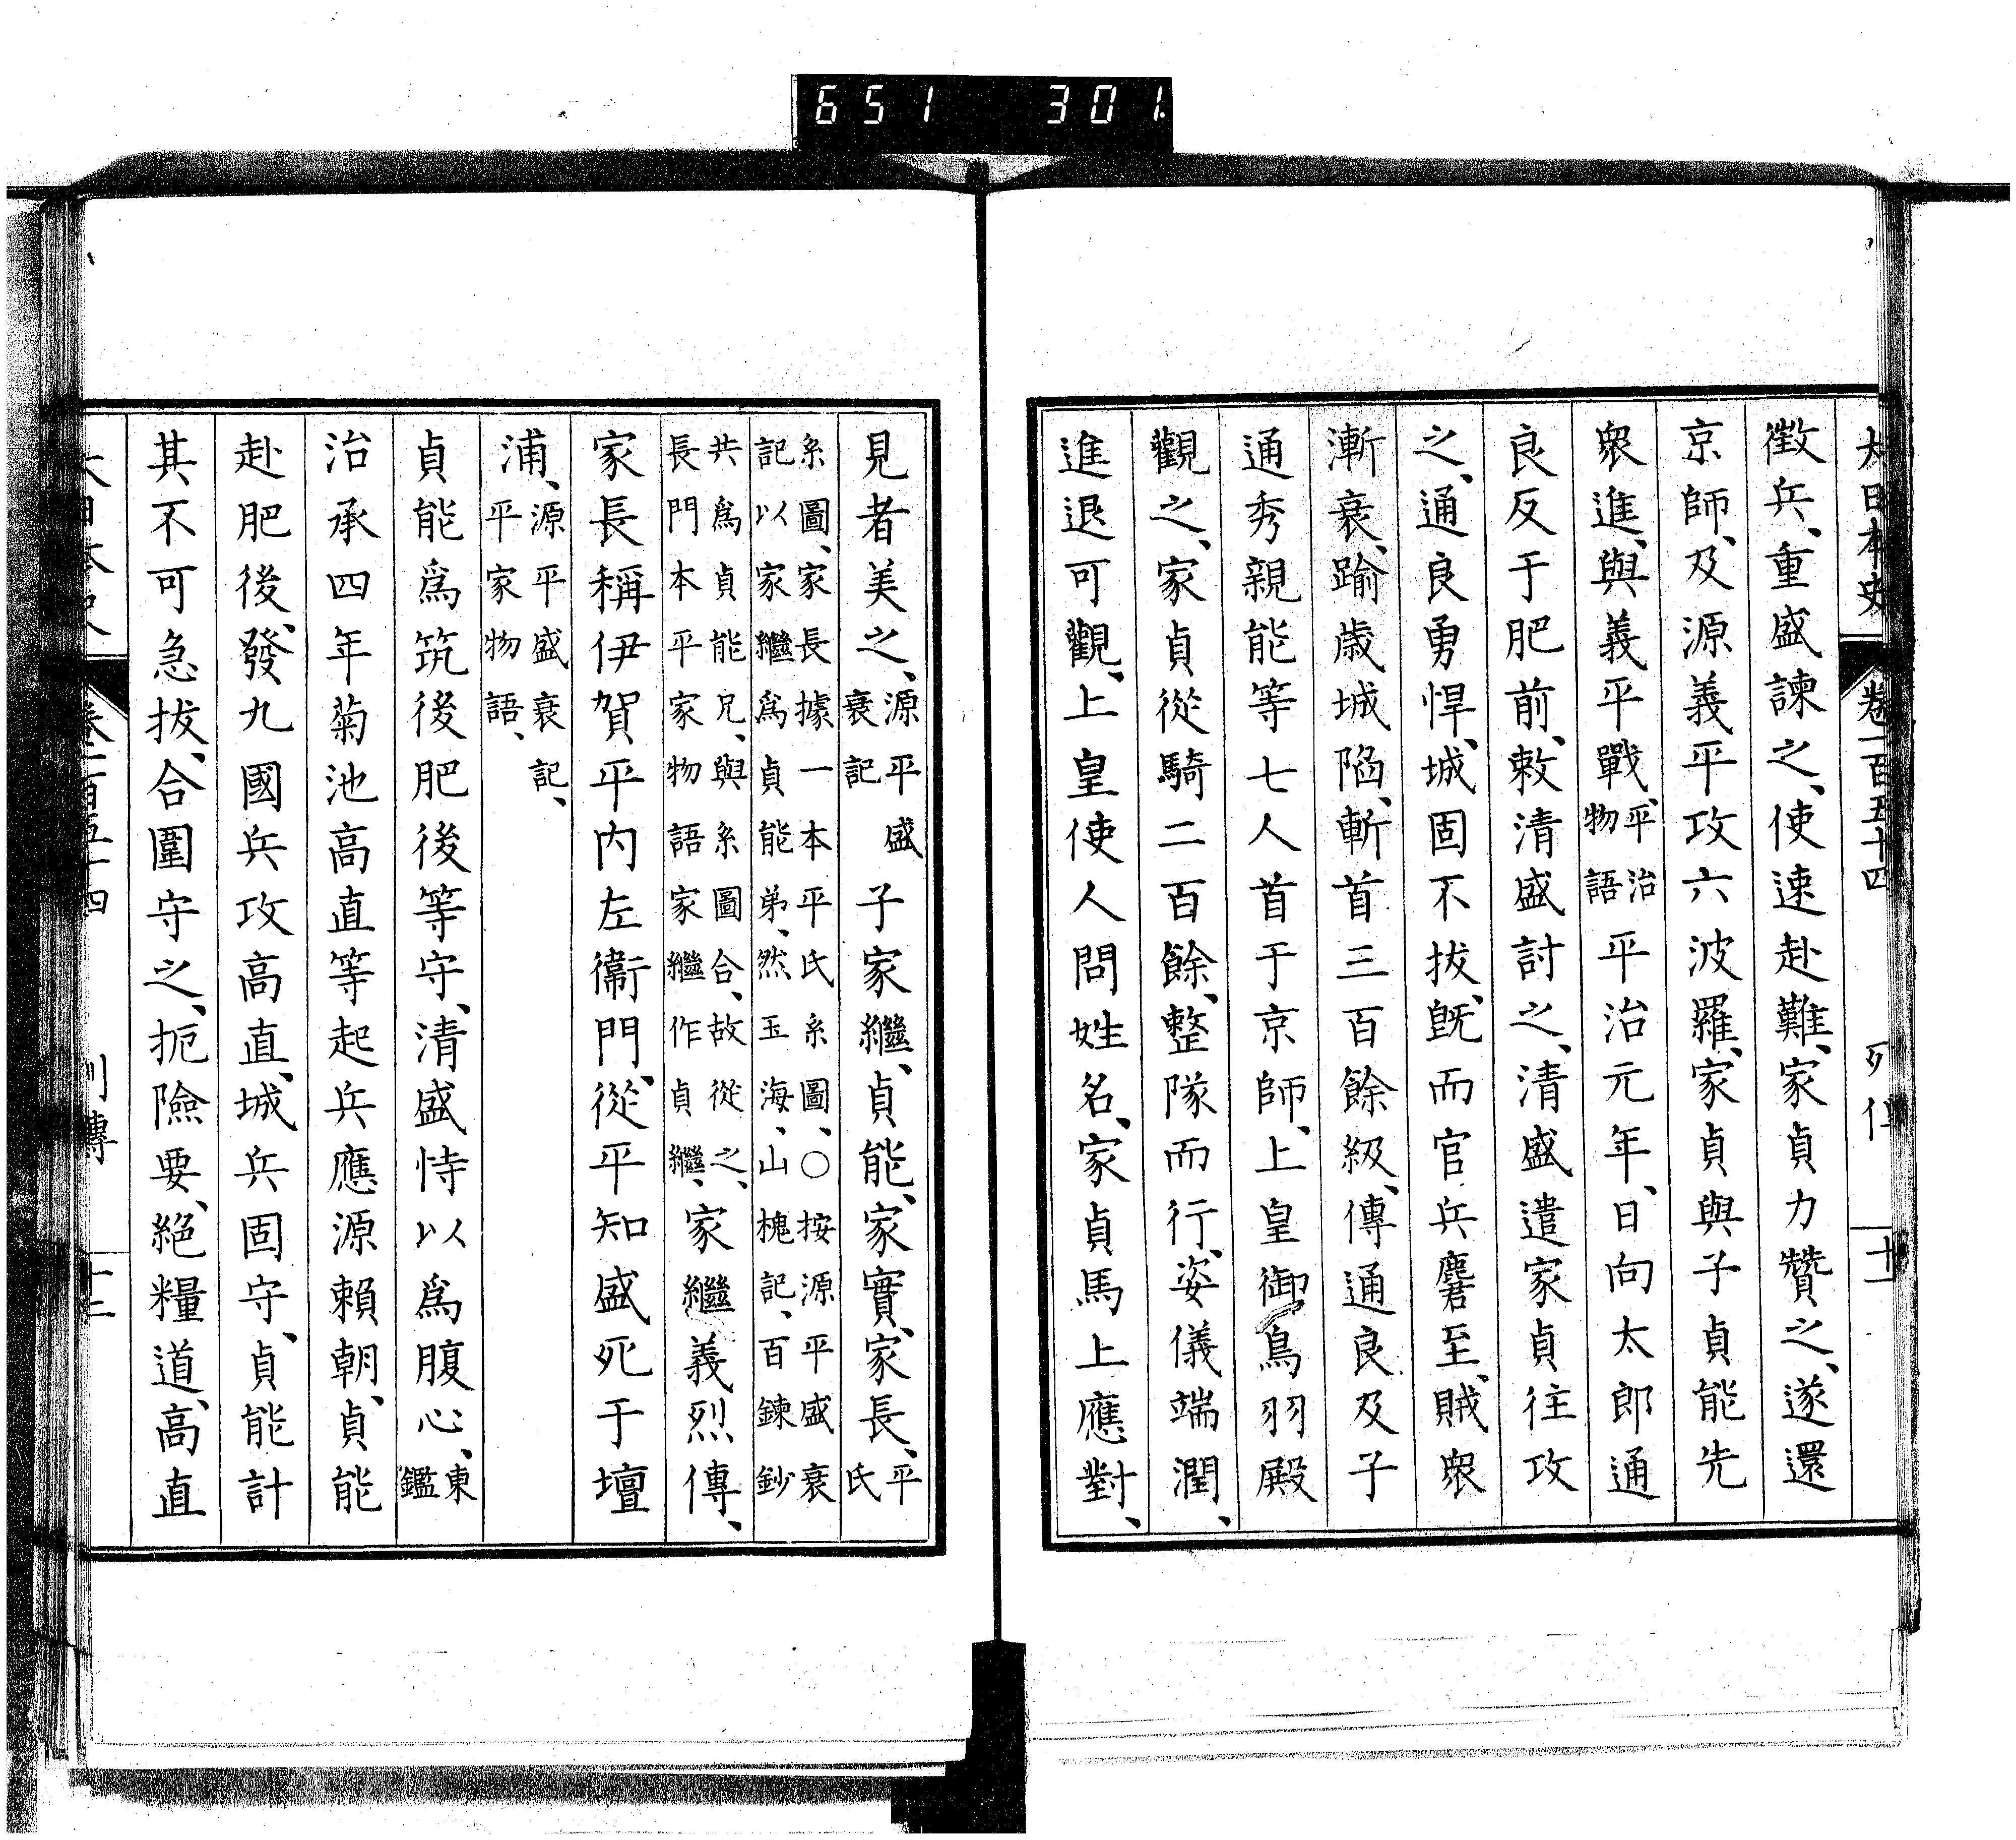 651 301
大日本史 卷一百五十四 列傳 十一
徵兵、重盛諫之、使速赴難、家貞力贊之、遂還
京師、及源義平攻六波羅、家貞與子貞能先
衆進、與義平戰、平治物語 平治元年、日向太郎通
良反于肥前、敕清盛討之、清盛遣家貞往攻
之、通良勇悍、城固不拔、旣而官兵麕至、賊衆
漸衰、踰歲城陷、斬首三百餘級、傳通良及子
通秀親能等七人首于京師、上皇御鳥羽殿
觀之、家貞從騎二百餘、整隊而行、姿儀端潤、
進退可觀、上皇使人問姓名、家貞馬上應對、
見者美之、源平盛衰記 子家繼、貞能、家實、家長、平氏
系圖、家長據一本平氏系圖、○按源平盛衰
記以家繼爲貞能弟、然玉海、山槐記、百鍊鈔
共爲貞能兄、與系圖合、故從之、
長門本平家物語家繼作貞繼、家繼義烈傳、
家長稱伊賀平內左衞門、從平知盛死于壇
浦、源平盛衰記、平家物語、
貞能爲筑後肥後等守、清盛恃以爲腹心、東鑑
治承四年菊池高直等起兵應源賴朝、貞能
赴肥後、發九國兵攻高直、城兵固守、貞能計
其不可急拔、合圍守之、扼險要、絕糧道、高直
大日本史 卷一百五十四 列傳 十二